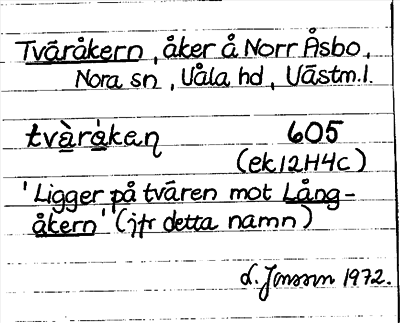 Tväråkern, åker å Norr Åsbo,
Nora sn, Våla hd, Västm.l.
tvὰràkaɳ 605
(ek 12H4c)
'Ligger på tvären mot Lång-
åkern' (jfr detta namn)
L. Jonsson 1972.